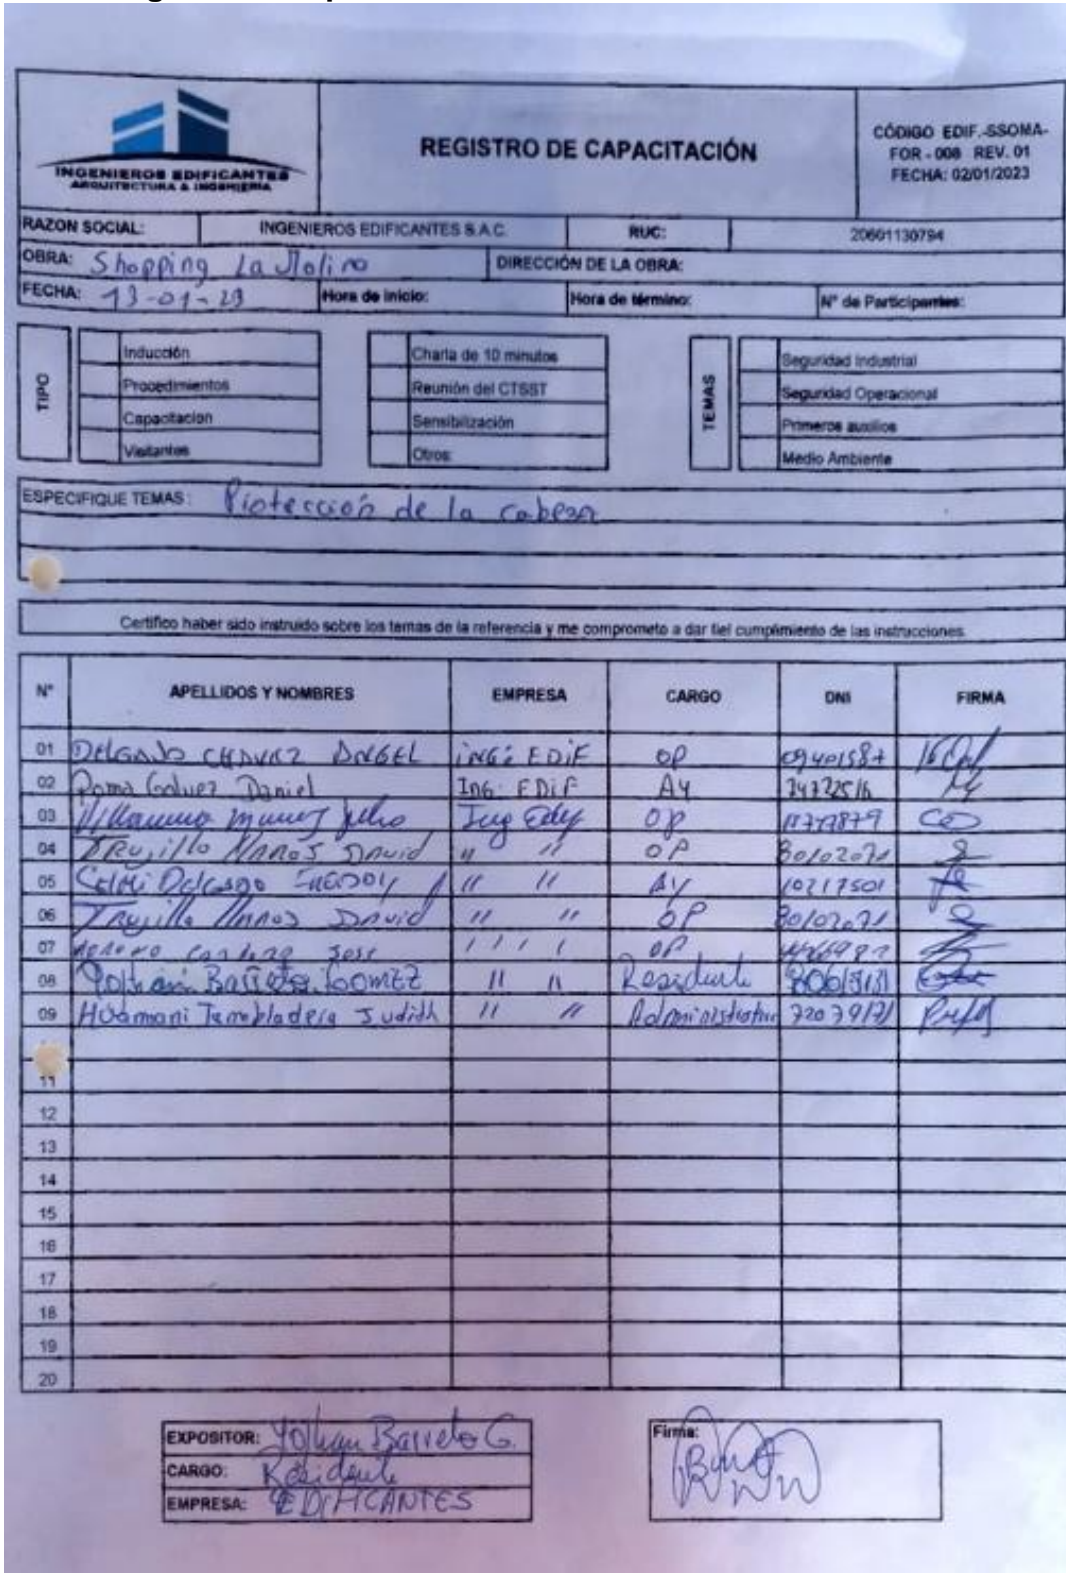 INGENIEROS EDIFICANTES
ARQUITECTURA & INGENIERIA
REGISTRO DE CAPACITACIÓN
CÓDIGO EDIF.-SSOMA-
FOR - 008 REV. 01
FECHA: 02/01/2023
RAZON SOCIAL: INGENIEROS EDIFICANTES S.A.C. RUC: 20601130794
OBRA: Shopping La Molina DIRECCIÓN DE LA OBRA:
FECHA: 13-01-23 Hora de inicio: Hora de término: N° de Participantes:
TIPO
Inducción
Procedimientos
Capacitacion
Visitantes
Charla de 10 minutos
Reunión del CTSST
Sensibilización
Otros:
TEMAS
Seguridad Industrial
Seguridad Operacional
Primeros auxilios
Medio Ambiente
ESPECIFIQUE TEMAS: Protección de la cabeza
Certifico haber sido instruido sobre los temas de la referencia y me comprometo a dar fiel cumplimiento de las instrucciones.
N° APELLIDOS Y NOMBRES EMPRESA CARGO DNI FIRMA
01 DELGADO CHAVEZ ANGEL ING: EDIF OP
02 Poma Galvez Daniel ING: EDIF AY
03 Julio Ing Edif OP
04 TRUJILLO DAVID " " OP 80102071
05 " " AY 10217501
06 Trujillo David " " OP 80102071
07 Jose OP
08 Barreto GOMEZ " " Residente
09 Huamani Tembladera Judith " " Administrativo
11
12
13
14
15
16
17
18
19
20
EXPOSITOR: Barreto G.
CARGO: Residente
EMPRESA: EDIFICANTES
Firma: